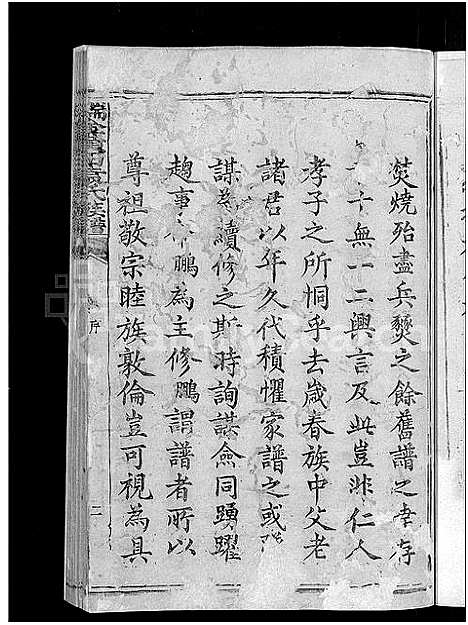 焚燒殆盡兵燹之餘舊譜之幸存
十無一二興言及此豈非仁人
孝子之所恫乎去歲春族中父老
諸君以年久代積懼家譜之或
謀為續修之斯時詢謀僉同踴躍
趨事 鵬為主修鵬謂譜者所以
尊祖敬宗睦族敦倫豈可視為具
氏族譜
序
二